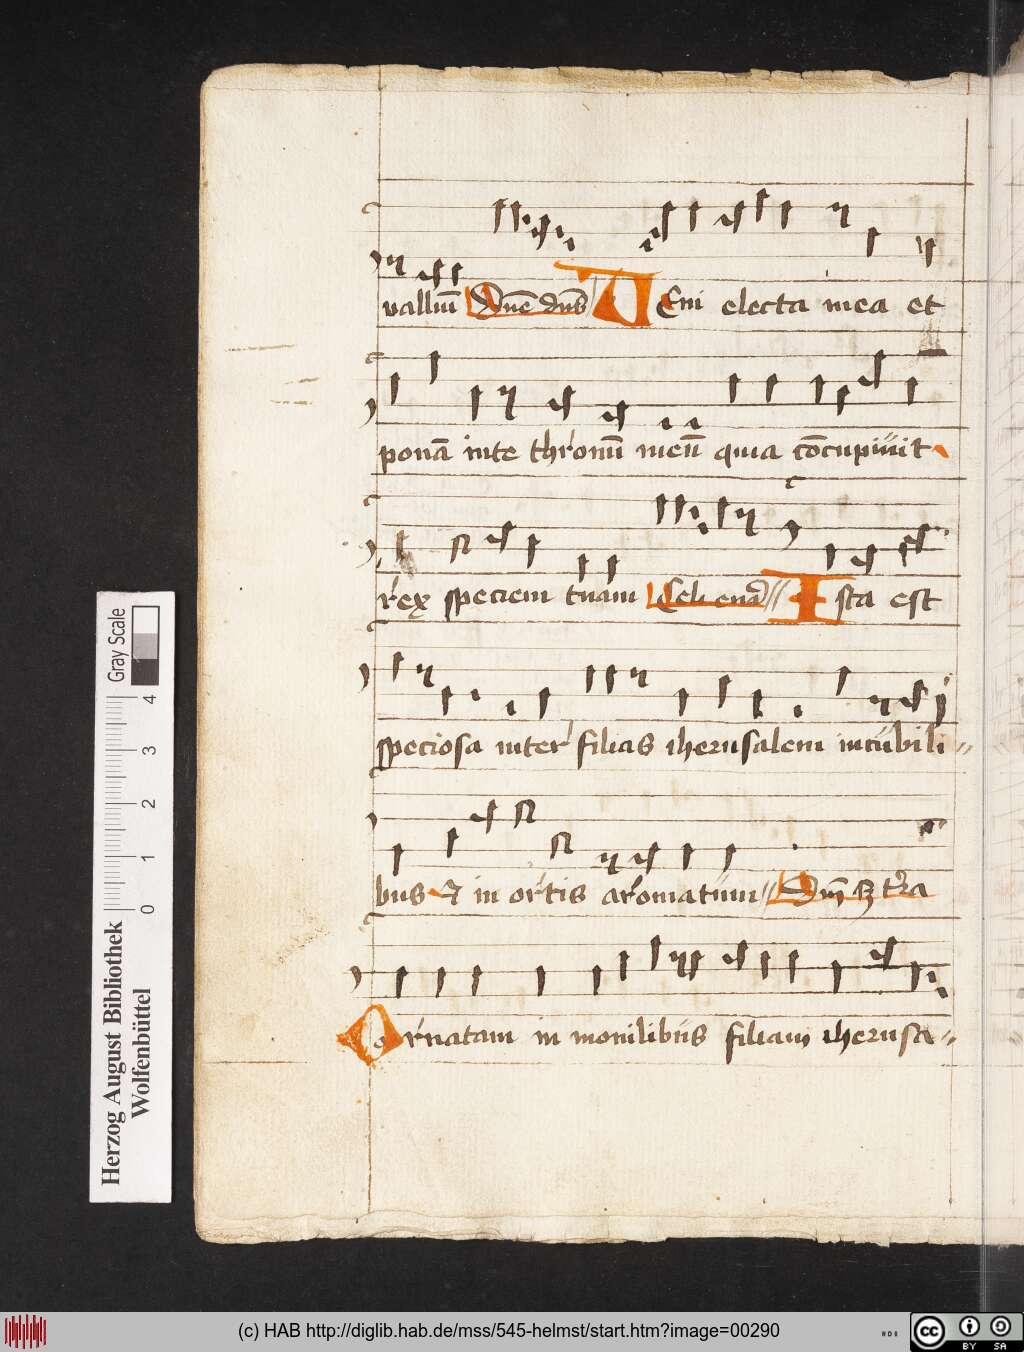 valliū Dn̄e dn̄s VEni electa mea et
ponā inte thronū meū quia cōcupiuit
rex speciem tuam Celi enar̄ Ista est
speciosa inter filias iherusalem in cubili=
bus & in ortis aromatum Dn̄i ē t̄ra
Ornatam in monilibus filiam iherusa=
Gray Scale
0 1 2 3 4
Herzog August Bibliothek
Wolfenbüttel
(c) HAB http://diglib.hab.de/mss/545-helmst/start.htm?image=00290
cc BY SA